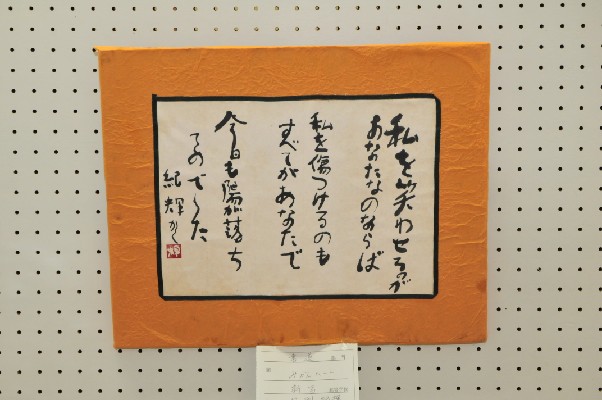 私を笑わせるのが
あなたなのならば
私を傷つけるのも
すべてがあなたで
今日も陽が落ち
てのでした
紀輝かく